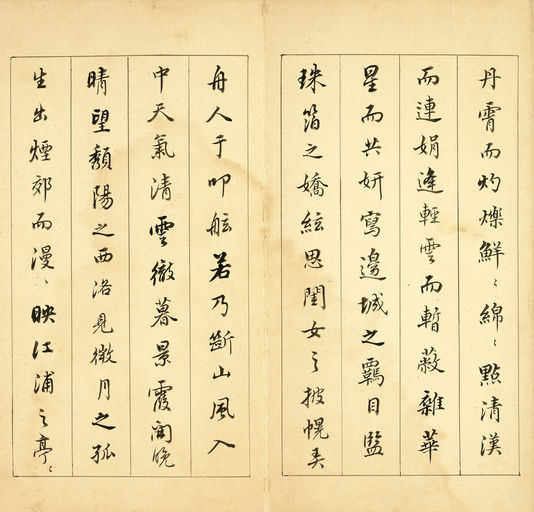 丹霄而灼爍鮮〻綿〻點清漢
而連娟逢輕雲而暫蔽雜華
星而共妍寫邊城之羈目監
珠箔之嬌絃思閨女之披幌美
舟人于叩舷若乃斷山風入
中天氣清雲徹暮景霞開晚
晴望頹陽之西洛見微月之孤
生出煙郊而漫〻映江浦之亭〻